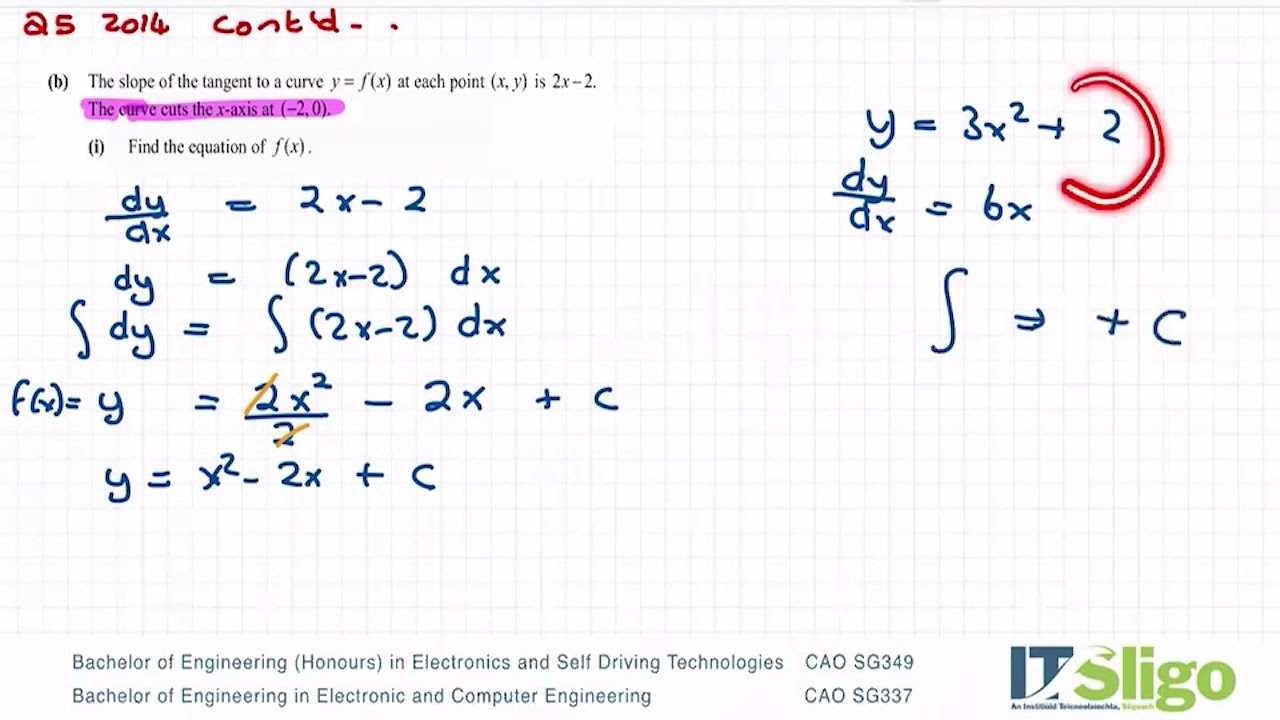 Q5 2014 Cont'd - .
(b) The slope of the tangent to a curve y = f(x) at each point (x, y) is 2x − 2.
The curve cuts the x-axis at (−2, 0).
(i) Find the equation of f(x).
dy/dx = 2x - 2
dy = (2x-2) dx
∫ dy = ∫ (2x-2) dx
f(x) = y = 2x²/2 - 2x + c
y = x² - 2x + c
y = 3x² + 2
dy/dx = 6x
∫ ⇒ + C
Bachelor of Engineering (Honours) in Electronics and Self Driving Technologies CAO SG349
Bachelor of Engineering in Electronic and Computer Engineering CAO SG337
IT Sligo
An Institiúid Teicneolaíochta, Sligeach